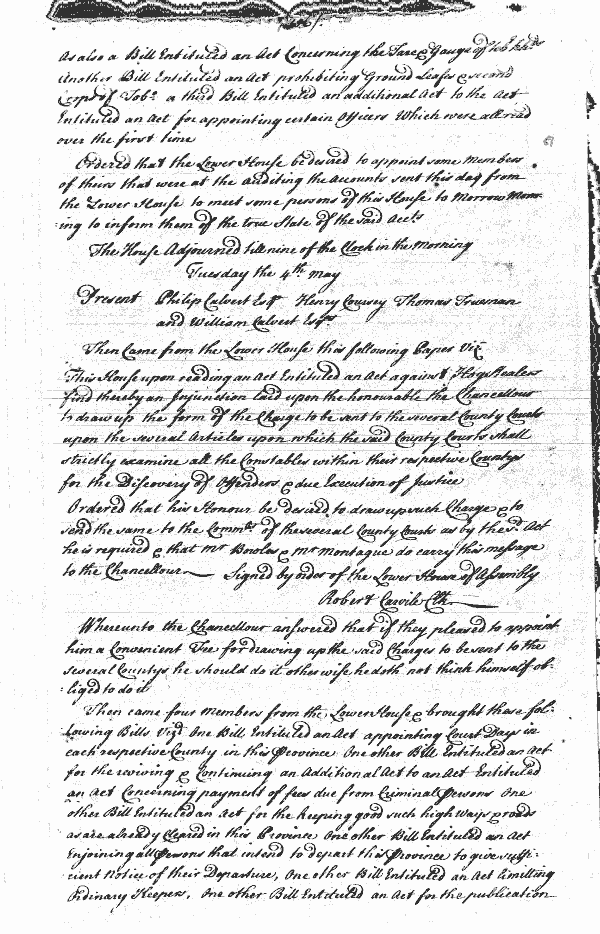 As also a Bill Entituled an Act Concerning the Tare & Gauge of Tob hhds
Another Bill Entituled an Act prohibiting Ground Leafes & second
Crops of Tobo. a third Bill Entituled an additional Act to the Act
Entituled an Act for appointing certain Officers Which were all read
over the first time
Ordered that the Lower House be desired to appoint some Members
of theirs that were at the Auditing the Accounts sent this day from
the Lower House to meet some persons of this House to Morrow Morn
ing to inform them of the true State of the said Accts
The House Adjourned till nine of the Clock in the Morning
Tuesday the 4th. May
Present Philip Calvert Esqr Henry Coursey Thomas Trueman
and William Calvert Esqrs
Then Came from the Lower House this following Paper Viz
This House upon reading an Act Entituled an Act against Hogg stealers
find thereby an Injunction laid upon the honourable the Chancellour
to draw up the form of the Charge to be sent to the several County Courts
upon the several Articles upon which the said County Courts shall
strictly examine all the Constables within their respective Countys
for the Discovery of Offenders & due Execution of Justice
Ordered that his Honour be desired to draw up such Charge & to
send the same to the Commrs of the several County Courts as by the sd. Act
he is required & that mr Bowles & mr Montague do carry this message
to the Chancellour Signed by order of the Lower House of Assembly
Robert Carvile Clk
Whereunto the Chancellour answered that if they pleased to appoint
him a Convenient Fee for drawing up the said Charges to be sent to the
several Countys he should do it otherwise he doth not think himself ob-
:liged to do it
Then came four Members from the Lower House & brought these fol-
:lowing Bills Vizt One Bill Entituled an Act appointing Court Days in
each respective County in this Province One other Bill Entituled an Act
for the reviving & Continuing an Additional Act to an Act Entituled
an Act Concerning payment of fees due from Criminal Persons One
other Bill Entituled an Act for the keeping good such high Ways & roads
as are already Cleared in this Province One other Bill Entituled an Act
Enjoining all Persons that intend to depart this Province to give suffi-
:cient Notice of their Departure, One other Bill Entituled an Act limitting
Ordinary Keepers, One other Bill Entituled an Act for the publication